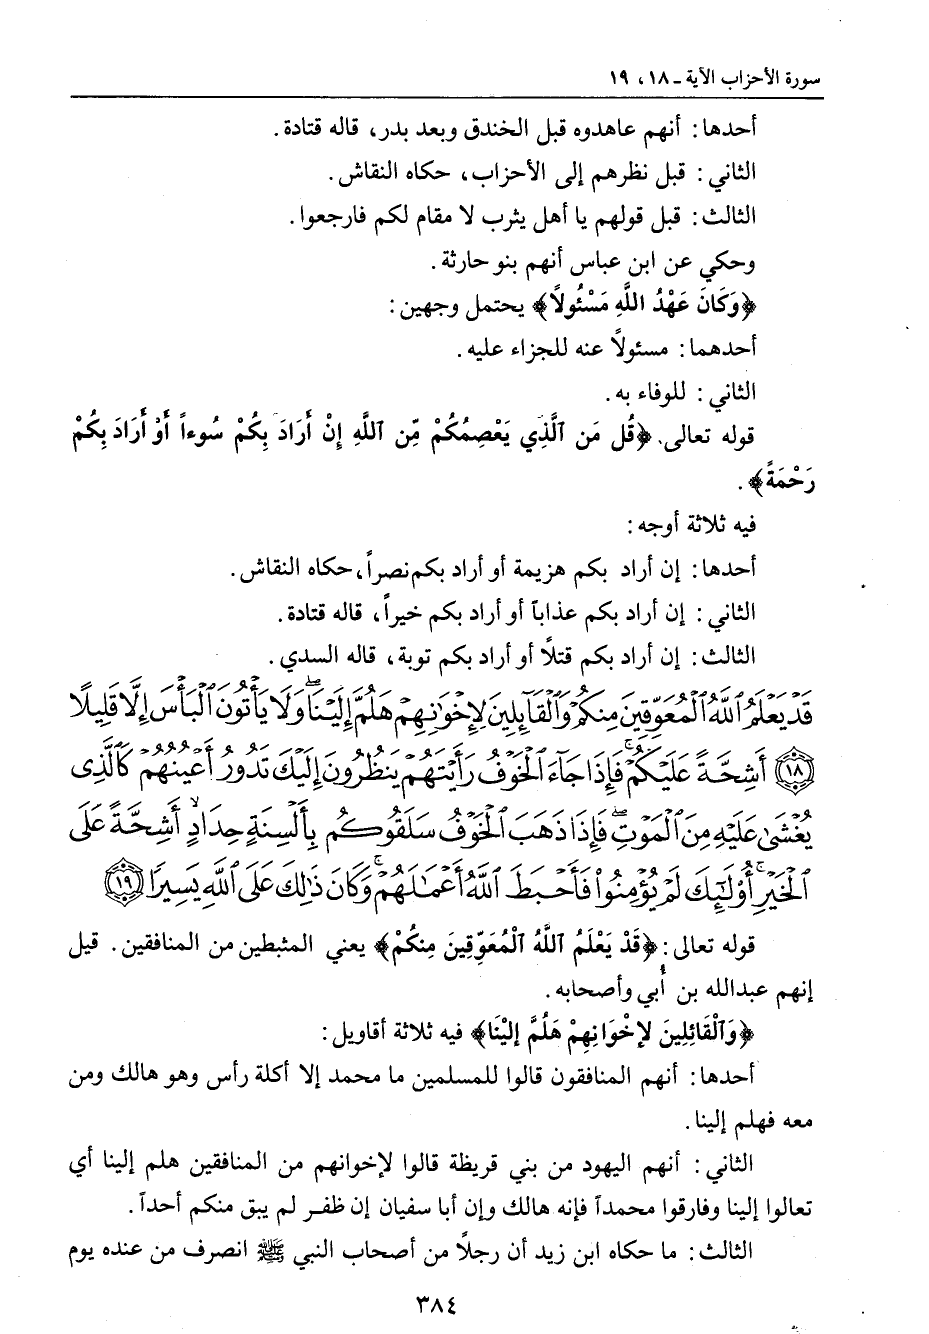 سورة الأحزاب الآية ـ ١٨، ١٩
أحدها: أنهم عاهدوه قبل الخندق وبعد بدر، قاله قتادة.
الثاني: قبل نظرهم إلى الأحزاب، حكاه النقاش.
الثالث: قبل قولهم يا أهل يثرب لا مقام لكم فارجعوا.
وحكي عن ابن عباس أنهم بنو حارثة.
﴿وَكَانَ عَهْدُ اللَّهِ مَسْئُولاً﴾ يحتمل وجهين:
أحدهما: مسئولاً عنه للجزاء عليه.
الثاني: للوفاء به.
قوله تعالى. ﴿قُل مَن ٱلَّذِي يَعْصِمُكُمْ مِّن ٱللَّهِ إِنْ أَرَادَ بِكُمْ سُوءاً أَوْ أَرَادَ بِكُمْ
رَحْمَةً﴾.
فيه ثلاثة أوجه:
أحدها: إن أراد بكم هزيمة أو أراد بكم نصراً، حكاه النقاش.
الثاني: إن أراد بكم عذاباً أو أراد بكم خيراً، قاله قتادة.
الثالث: إن أراد بكم قتلًا أو أراد بكم توبة، قاله السدي.
قَدْ يَعْلَمُ ٱللَّهُ ٱلْمُعَوِّقِينَ مِنكُمْ وَٱلْقَآئِلِينَ لِإِخْوَٰنِهِمْ هَلُمَّ إِلَيْنَاۖ وَلَا يَأْتُونَ ٱلْبَأْسَ إِلَّا قَلِيلًا
﴿١٨﴾ أَشِحَّةً عَلَيْكُمْۖ فَإِذَا جَآءَ ٱلْخَوْفُ رَأَيْتَهُمْ يَنظُرُونَ إِلَيْكَ تَدُورُ أَعْيُنُهُمْ كَٱلَّذِى
يُغْشَىٰ عَلَيْهِ مِنَ ٱلْمَوْتِۖ فَإِذَا ذَهَبَ ٱلْخَوْفُ سَلَقُوكُم بِأَلْسِنَةٍ حِدَادٍ أَشِحَّةً عَلَى
ٱلْخَيْرِۚ أُوْلَٰٓئِكَ لَمْ يُؤْمِنُوا۟ فَأَحْبَطَ ٱللَّهُ أَعْمَٰلَهُمْۚ وَكَانَ ذَٰلِكَ عَلَى ٱللَّهِ يَسِيرًا ﴿١٩﴾
قوله تعالى: ﴿قَدْ يَعْلَمُ ٱللَّهُ ٱلْمُعَوِّقِينَ مِنكُمْ﴾ يعني المثبطين من المنافقين. قيل
إنهم عبدالله بن أُبي وأصحابه.
﴿وَٱلْقَائِلِينَ لإِخْوَانِهِمْ هَلُمَّ إِلَيْنَا﴾ فيه ثلاثة أقاويل:
أحدها: أنهم المنافقون قالوا للمسلمين ما محمد إلا أكلة رأس وهو هالك ومن
معه فهلم إلينا.
الثاني: أنهم اليهود من بني قريظة قالوا لإخوانهم من المنافقين هلم إلينا أي
تعالوا إلينا وفارقوا محمداً فإنه هالك وإن أبا سفيان إن ظفر لم يبق منكم أحداً.
الثالث: ما حكاه ابن زيد أن رجلاً من أصحاب النبي ﷺ انصرف من عنده يوم
٣٨٤